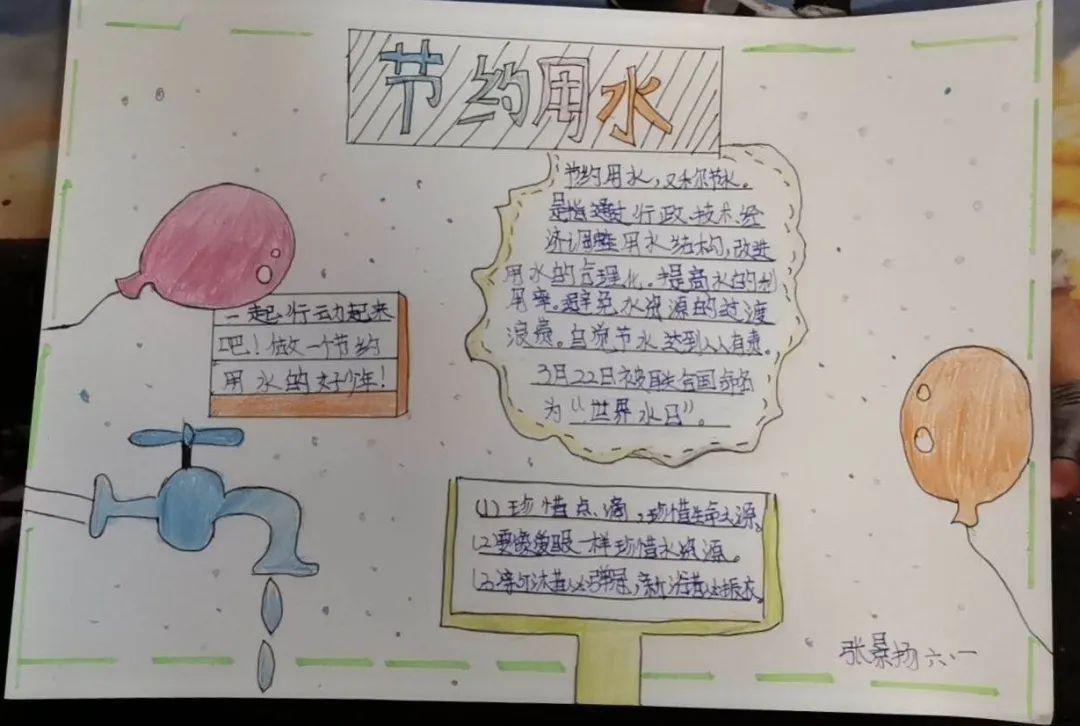 节约用水
节约用水,又称节水。
是指通过行政、技术、经
济调整用水结构,改进
用水的合理化。提高水的利
用率。避免水资源的过渡
浪费。自觉节水达到人人有责。
3月22日被联合国命名
为“世界水日”。
一起行动起来
吧!做一个节约
用水的好少年!
(1)珍惜点、滴,珍惜生命之源。
(2)要像爱眼一样珍惜水资源。
(3)亲可沐昔必弹冠,新浴昔必振衣。
张景扬 六、一